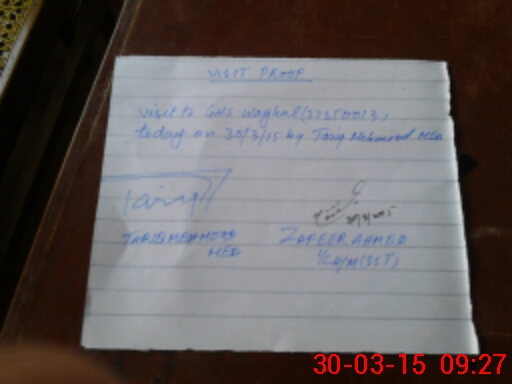 VISIT PROOF
visit to GHS Waghal (37350013)
today on 30/3/15 by Tariq Mehmood MEA
Tariq
TARIQ MEHMOOD
MEA
ZAFEER AHMED
I/C H/M (SST)
30-03-15 09:27